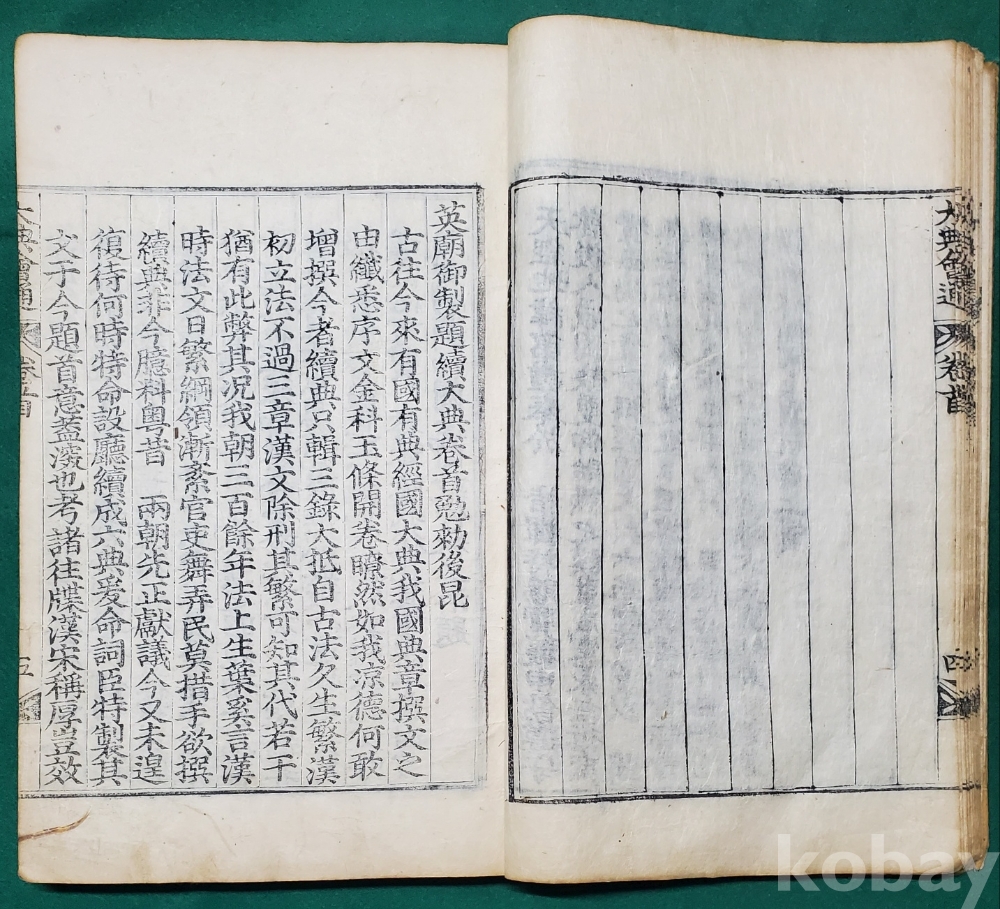 大典會通 卷首 四
英廟御製題續大典卷首勉勑後昆
古往今來有國有典經國大典我國典章撰文之
由纖悉序文金科玉條開卷瞭然如我凉德何敢
增撰今者續典只輯三錄大抵自古法久生繁漢
初立法不過三章漢文除刑其繁可知其代若干
猶有此弊其况我朝三百餘年法上生葉奚言漢
時法文日繁綱領漸紊官吏舞弄民莫措手欲撰
續典非今臆料粤昔 兩朝先正獻議今又未遑
復待何時特命設廳續成六典爰命詞臣特製其
文于今題首意蓋深也考諸往牒漢宋稱厚豈效
大典會通 卷首 五
kobay